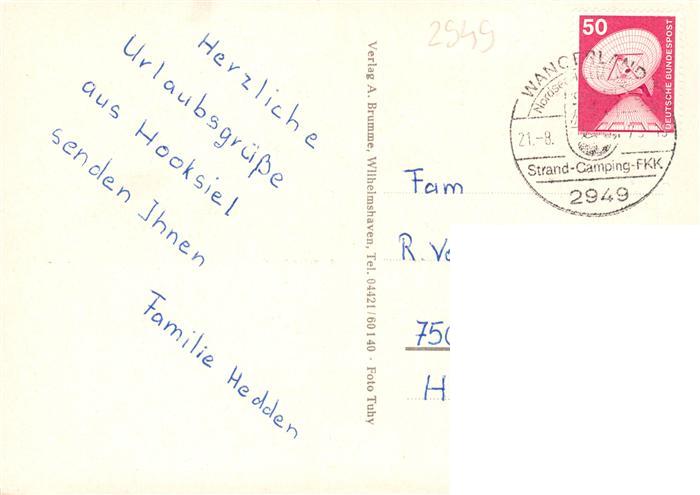 Herzliche
Urlaubsgrüße
aus Hooksiel
senden Ihnen
Familie Hedden
Verlag A. Brumme, Wilhelmshaven, Tel. 04421/60140 · Foto Tuhy
2949
50
DEUTSCHE BUNDESPOST
WANGERLAND
21.-8.
Strand-Camping-FKK
2949
Fam
R. Ve
750
H